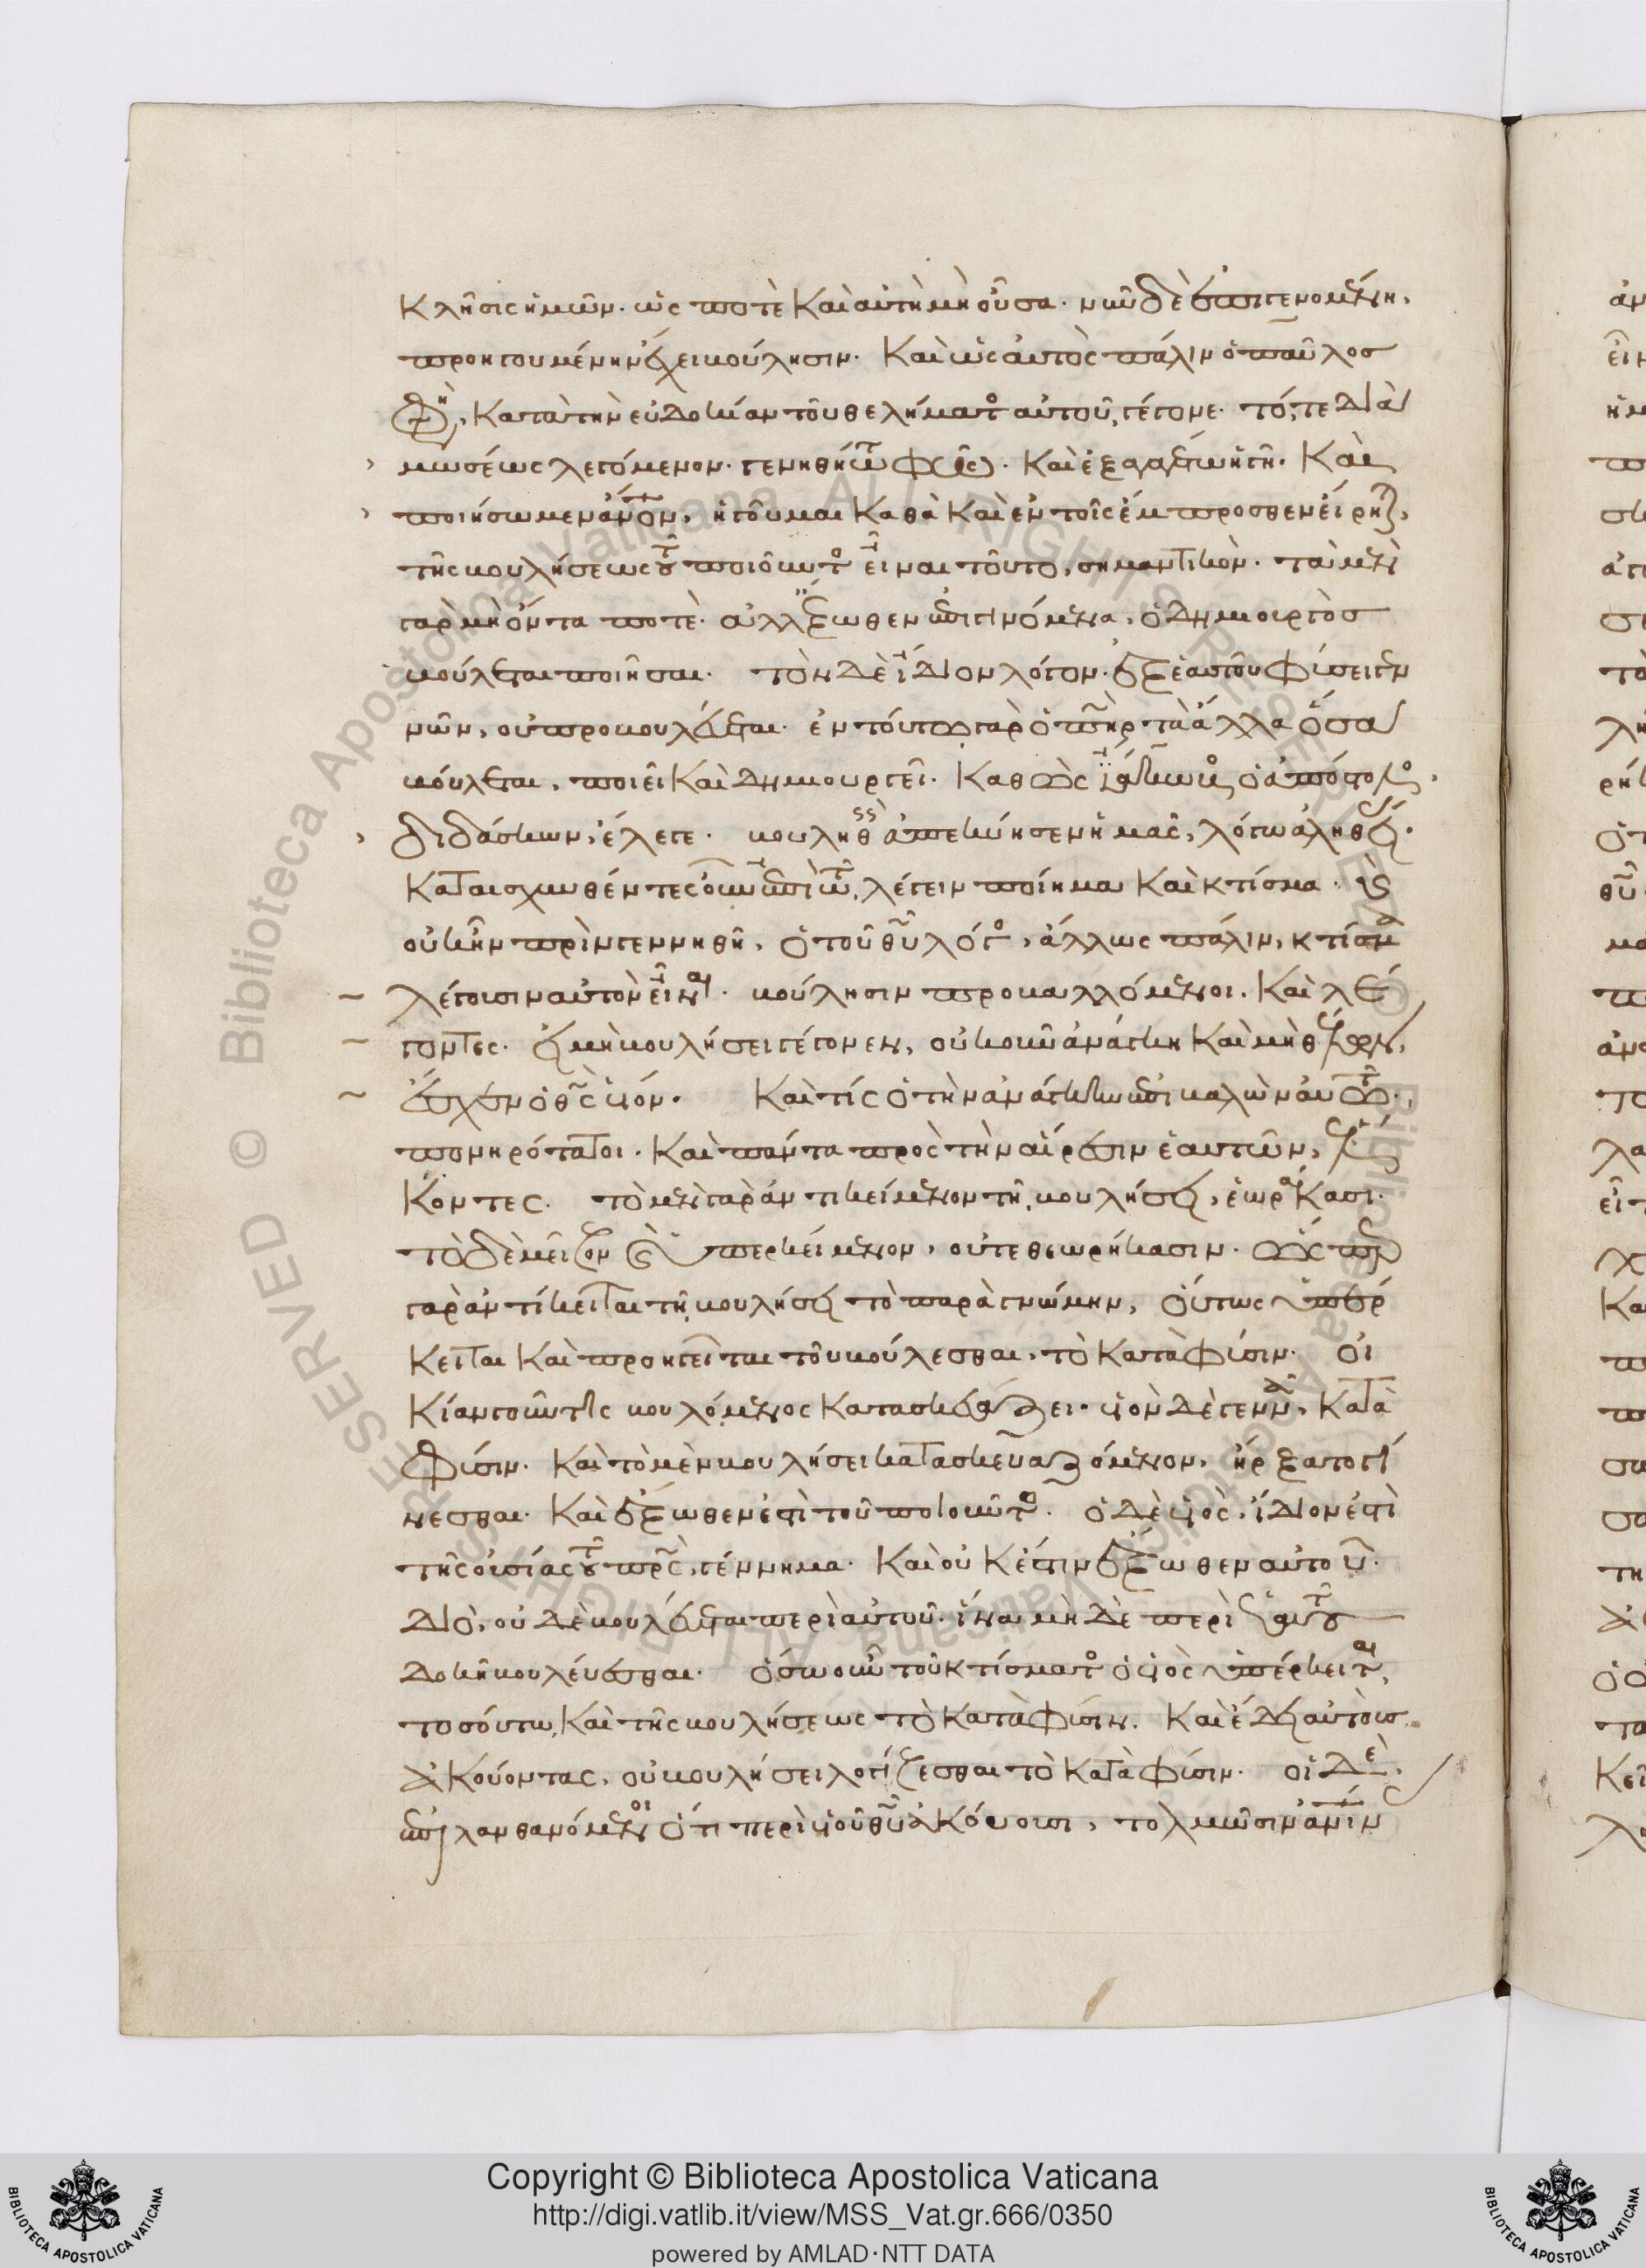 κλῆσις ἡμῶν. ὥς ποτὲ καὶ αὐτὴ μὴ οὖσα. νῦν δὲ ἐπιγενομένη,
προηγουμένην ἔχει βούλησιν. καὶ ὡς αὐτὸς πάλιν ὁ παῦλος
φη(σὶ), κατὰ τὴν εὐδοκίαν τοῦ θελήματος αὐτοῦ, γέγονε. τό, τε διὰ
μωσέως λεγόμενον. γενηθήτω φῶς. καὶ ἐξαγαγέτω ἡ γῆ. καὶ
ποιήσωμεν ἄνον, ἡγοῦμαι καθὰ καὶ ἐν τοῖς ἔμπροσθεν εἴρηται,
τῆς βουλήσεως τοῦ ποιοῦντος εἶναι τοῦτο, σημαντικόν. τὰ μὲν
γὰρ μὴ ὄντα ποτὲ. ἀλλ' ἔξωθεν ἐπιγινόμενα, ὁ δημιουργὸς
βούλεται ποιῆσαι. τὸν δὲ ἴδιον λόγον. ἐξ ἑαυτοῦ φύσει γεν
νῶν, οὐ προβουλεύεται. ἐν τούτω γὰρ ὁ πὴρ τὰ ἄλλα ὅσα
βούλεται, ποιεῖ καὶ δημιουργεῖ. καθὼς ἰάκωβος ὁ ἀπόστολος
διδάσκων, ἔλεγε. βουληθεὶς ἀπεκύησεν ἡμᾶς, λόγω ἀληθείας.
καταισχυνθέντες οὖν ἐπὶ τῶ, λέγειν ποίημα καὶ κτίσμα. καὶ
οὐκ ἦν πρὶν γεννηθῆ, ὁ τοῦ θυ λόγος, ἄλλως πάλιν, κτίσμα
λέγουσιν αὐτὸν εἶναι. βούλησιν προβαλλόμενοι. καὶ λέ
γοντες. εἰ μὴ βουλήσει γέγονεν, οὐκοῦν ἀνάγκη καὶ μὴ θέλων,
ἔσχεν ὁ θς υἱόν. καὶ τίς ὁ τὴν ἀνάγκην ἐπιβαλὼν αὐτῶ.
πονηρότατοι. καὶ πάντα πρὸς τὴν αἵρεσιν ἑαυτῶν, ἕλ
κοντες. τὸ μὲν γὰρ ἀντικείμενον τῆ βουλήσει, ἑωράκασι.
τὸ δὲ μεῖζον καὶ ὑπερκείμενον, οὔτε θεωρήκασιν. ὥσπερ
γὰρ ἀντίκειται τῆ βουλήσει τὸ παρὰ γνώμην, οὕτως ὑπέρ
κειται καὶ προηγεῖται τοῦ βούλεσθαι, τὸ κατὰ φύσιν. οἰ
κίαν τοῦν τις βουλόμενος κατασκευάζει. υἱὸν δὲ γεννᾶ, κατὰ
φύσιν. καὶ τὸ μὲν βουλήσει κατασκευαζόμενον, ἤρξατο γί
νεσθαι. καὶ ἔξωθεν ἐστὶ τοῦ ποιοῦντος. ὁ δὲ υἱὸς, ἴδιον ἐστὶ
τῆς οὐσίας τοῦ πρς, γέννημα. καὶ οὐκ ἔστιν ἔξωθεν αὐτοῦ.
διὸ, οὐδὲ βουλεύεται περὶ αὐτοῦ. ἵνα μὴ δὲ περὶ ἑαυτοῦ
δοκῆ βουλεύεσθαι. ὅσω οὖν τοῦ κτίσματος ὁ υἱὸς ὑπέρκειται,
τοσούτω, καὶ τῆς βουλήσεως τὸ κατὰ φύσιν. καὶ ἔδει αὐτοὺς
ἀκούοντας, οὐ βουλήσει λογίζεσθαι τὸ κατὰ φύσιν. οἱ δὲ,
ἐπιλανθανόμενοι ὅτι περὶ υἱοῦ θυ ἀκούουσι, τολμῶσιν ἀνίν